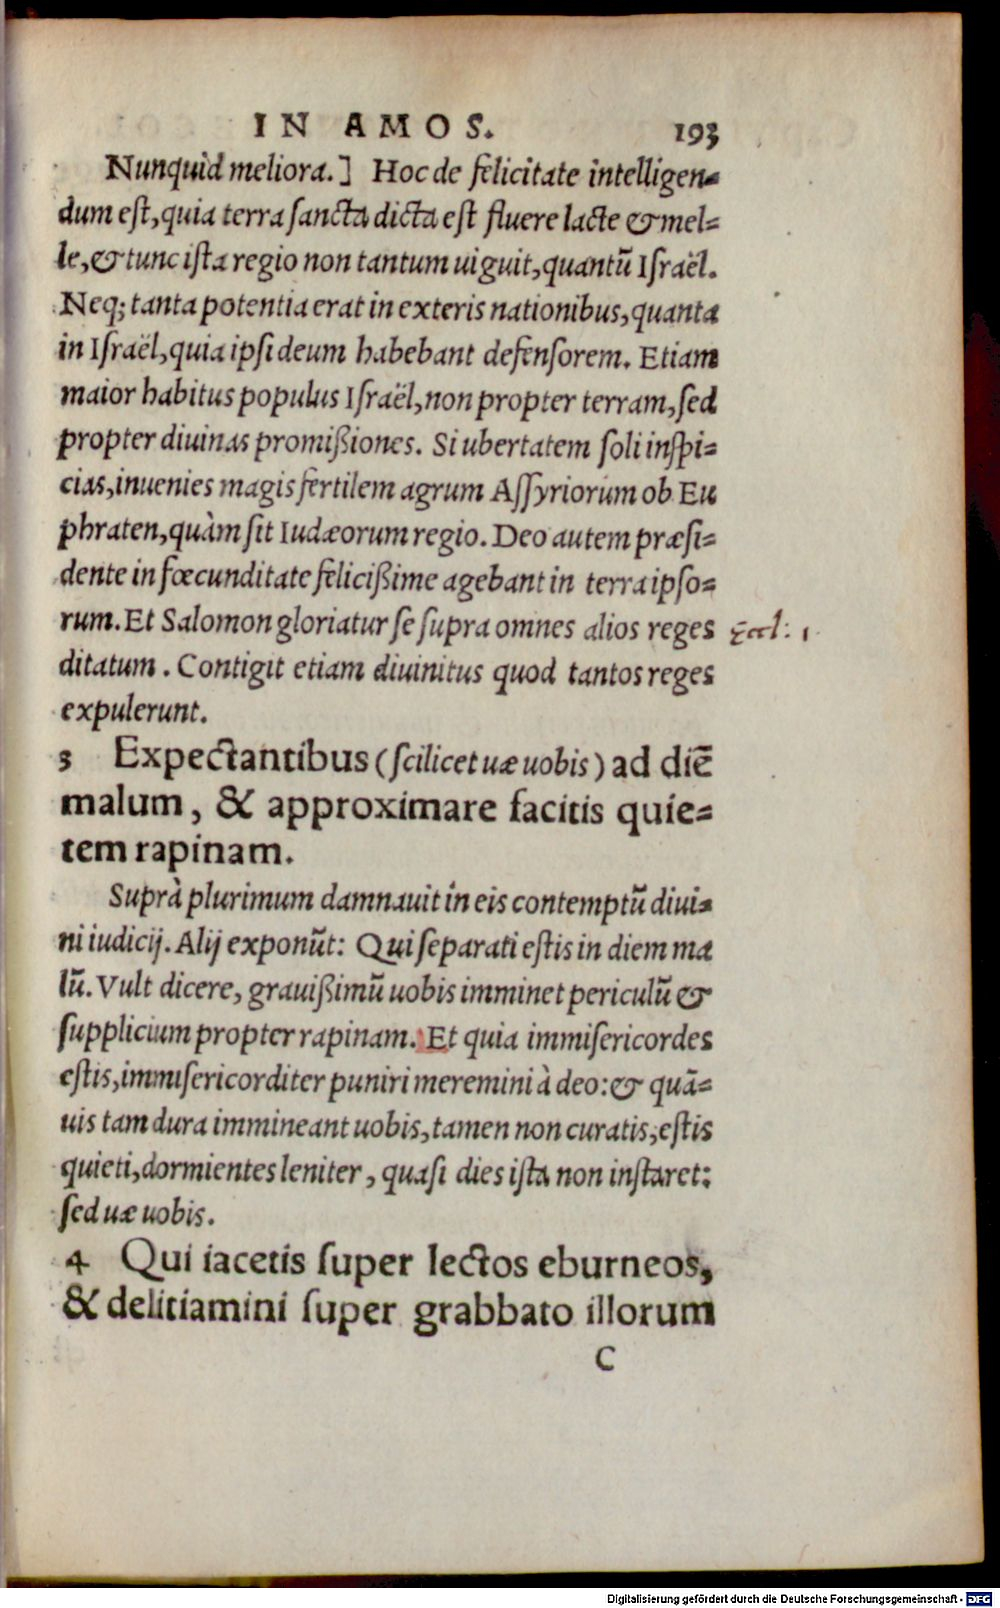 IN AMOS. 193
Nunquid meliora.] Hoc de felicitate intelligen=
dum est, quia terra sancta dicta est fluere lacte & mel=
le, & tunc ista regio non tantum uiguit, quantū Israël.
Neq; tanta potentia erat in exteris nationibus, quanta
in Israël, quia ipsi deum habebant defensorem. Etiam
maior habitus populus Israël, non propter terram, sed
propter diuinas promißiones. Si ubertatem soli inspi=
cias, inuenies magis fertilem agrum Assyriorum ob Eu
phraten, quàm sit Iudæorum regio. Deo autem præsi=
dente in fœcunditate felicißime agebant in terra ipso=
rum. Et Salomon gloriatur se supra omnes alios reges Eccl: 1
ditatum. Contigit etiam diuinitus quod tantos reges
expulerunt.
3 Expectantibus (scilicet uæ uobis) ad diē
malum, & approximare facitis quie=
tem rapinam.
Suprà plurimum damnauit in eis contemptū diui=
ni iudicij. Alij exponūt: Qui separati estis in diem ma
lū. Vult dicere, grauißimū uobis imminet periculū &
supplicium propter rapinam. Et quia immisericordes
estis, immisericorditer puniri meremini à deo: & quā=
uis tam dura immineant uobis, tamen non curatis, estis
quieti, dormientes leniter, quasi dies ista non instaret:
sed uæ uobis.
4 Qui iacetis super lectos eburneos,
& delitiamini super grabbato illorum
C
Digitalisierung gefördert durch die Deutsche Forschungsgemeinschaft - DFG